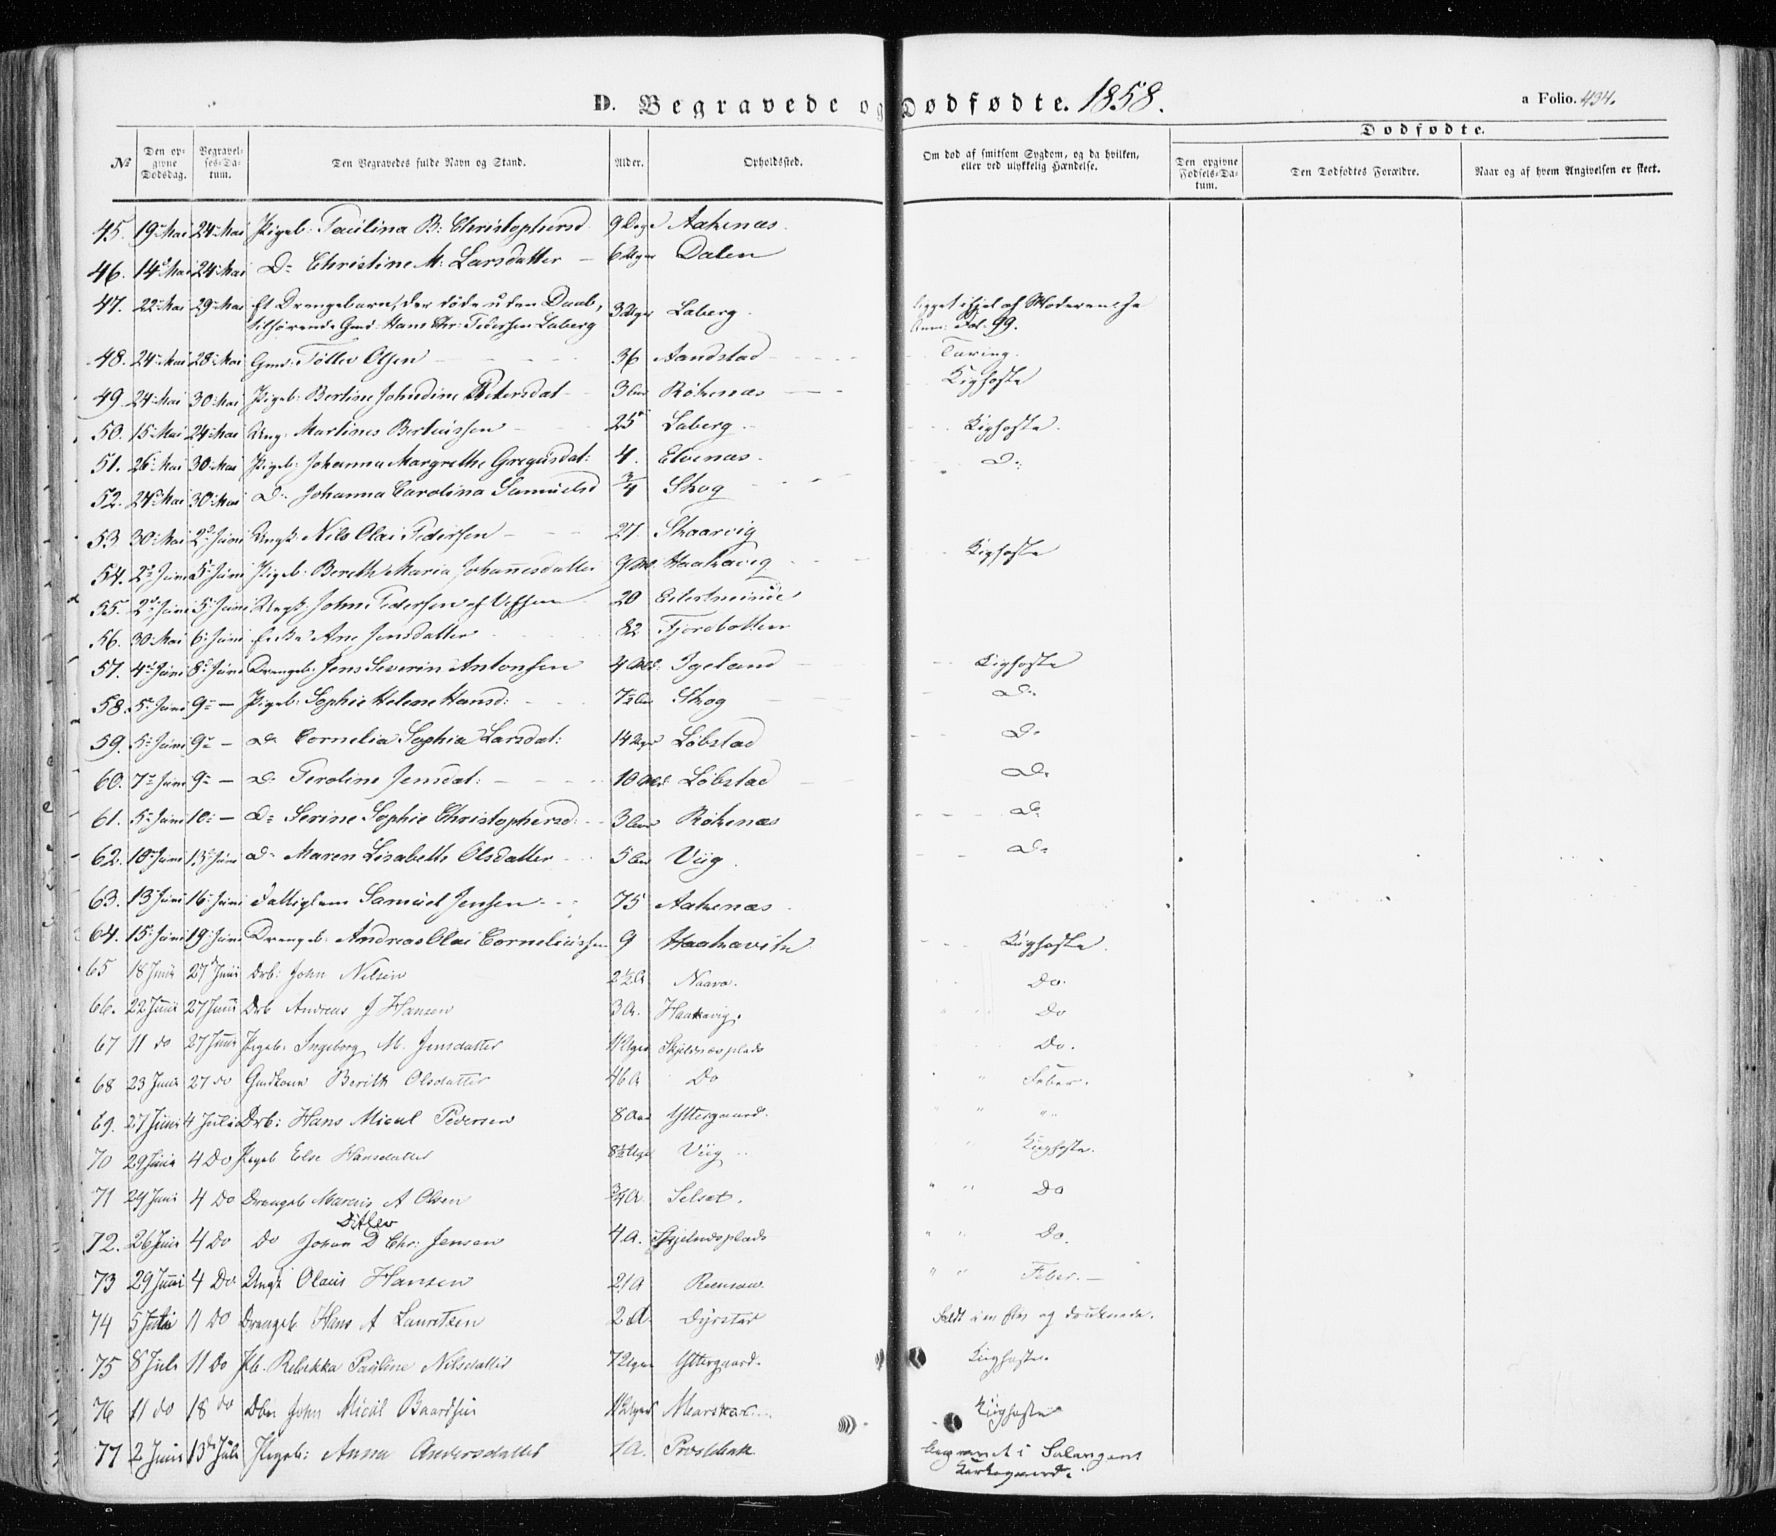 D. Begravede og Dødfødte. 1858.
a Folio. 434.
Dødfødte.
№ Den opgivne Dødsdag. Begravelses-Datum. Den Begravedes fulde Navn og Stand. Alder. Opholdssted. Om død af smitsom Sygdom, og da hvilken, eller ved ulykkelig Hændelse. Den opgivne Fødsels-Datum. Den Dødfødtes Forældre. Naar og af hvem Angivelsen er skeet.
45. 19de Mai 24de Mai Pigeb: Paulina B: Christophersd 9 Dage Aakenæs.
46. 14de Mai 24de Mai Do Christine M: Larsdatter 6 Uger Dalen
47. 22de Mai 29de Mai Et Drengebarn, der døde uden Daab,
tilhørende Gmd: Hans Chr: Pedersen Laberg 3 Uger Laberg. ligget ihjel af Moderen
Fol: 99.
48. 24de Mai 28de Mai Gmd: Tollev Olsen 36 Aandstad Tæring.
49. 24de Mai 30de Mai Pigeb: Bertine Johndine Petersdat 3 Røkenæs Kighoste
50. 15de Mai 24de Mai Ung: Martines Berteussen 25 Laberg. Kighoste.
51. 26de Mai 30de Mai Pigeb: Johanna Margrethe Gregusdat: 4. Elvenæs. Do
52. 24de Mai 30de Mai Do Johanna Carolina Samuelsd 3/4 Skog
53 30de Mai 2den Juni Ungk: Nils Olai Pedersen 27. Skaarvig
54. 2den Juni 5te Juni Pigeb: Bereth Maria Johannesdatter Haakavig Kighoste
55. 2den Juni 5te Juni Ungk: John Pedersen af Vefsen 20
56. 30de Mai 6te Juni Enke Ane Jensdatter 82 Fjordbotten
57. 4de Juni 8de Juni Drengeb: Jens Severin Antonsen 4 Igeland Kighoste
58. 5te Juni 9de — Pigeb: Sophie Helene Hansd: 7½ Skog Do
59. 5te Juni 9de — Do Cornelia Sophia Larsdat: 14 Uger Løbstad Do
60. 7de Juni 9de — Do Peroline Jensdat: 10 Løbstad Do
61. 5te Juni 10de — Do Serine Sophie Christophersd: 3 Røkenæs Do
62. 10de Juni 13de Juni Do Maren Lisabeth Olsdatter 5 Viig. Do
63. 13de Juni 16de Juni Fattiglem Samuel Jensen 75 Aakenæs
64. 15de Juni 19de Juni Drengeb: Andreas Olai Corneliussen 9 Haakavik Kighoste.
65 18 Juni 27de Juni Drb: John Nilsen 2½ A Naavo. Do.
66. 22 Juni 27 Juni Drb Andreas J Hansen 3 A. Haakavig. Do
67 11 do 27 Juni Pigeb: Ingeborg M. Jensdatter 11 Uger Skjelnesplads Do.
68 23 Juni 27 do Gmdkone Berith Olsdatter 46 A Do Feber.
69. 27 Juni 4 Juli Drb: Hans Mical Pedersen 8 Yttergaard. " " "
70 29 Juni 4 Do Pigeb Else Hansdatter 8½ Uger Viig Kighoste.
71 29 Juni 4 Do Drengeb Marcus A Olsen 3/4 A Selset. Do
Ditlev
72. 26 Juni 4 Do Do Johan D Chr: Jensen 4 A. Skjelnesplads Do.
73 29 Juni 4 Do Ungk Olaus Hansen 21 A Feber.—
74 5 Juli 11 Do Drengeb Hans A Lauretsen 2 A. Dyrstad Faldt i en Elv og druknede.
75 8 Juli 11 Do Pb. Rebekka Pauline Nilsdatter 7 Uger Ytergaard. Kighoste.
76 11 do 18 do Dbn John Mical Baardsen 11 Uger Kighoste
77 2 Juni 13de Juli Pigeb: Anna Andersdatter 1 A. Prestbak begravet i Salangens
Kirkegaard.